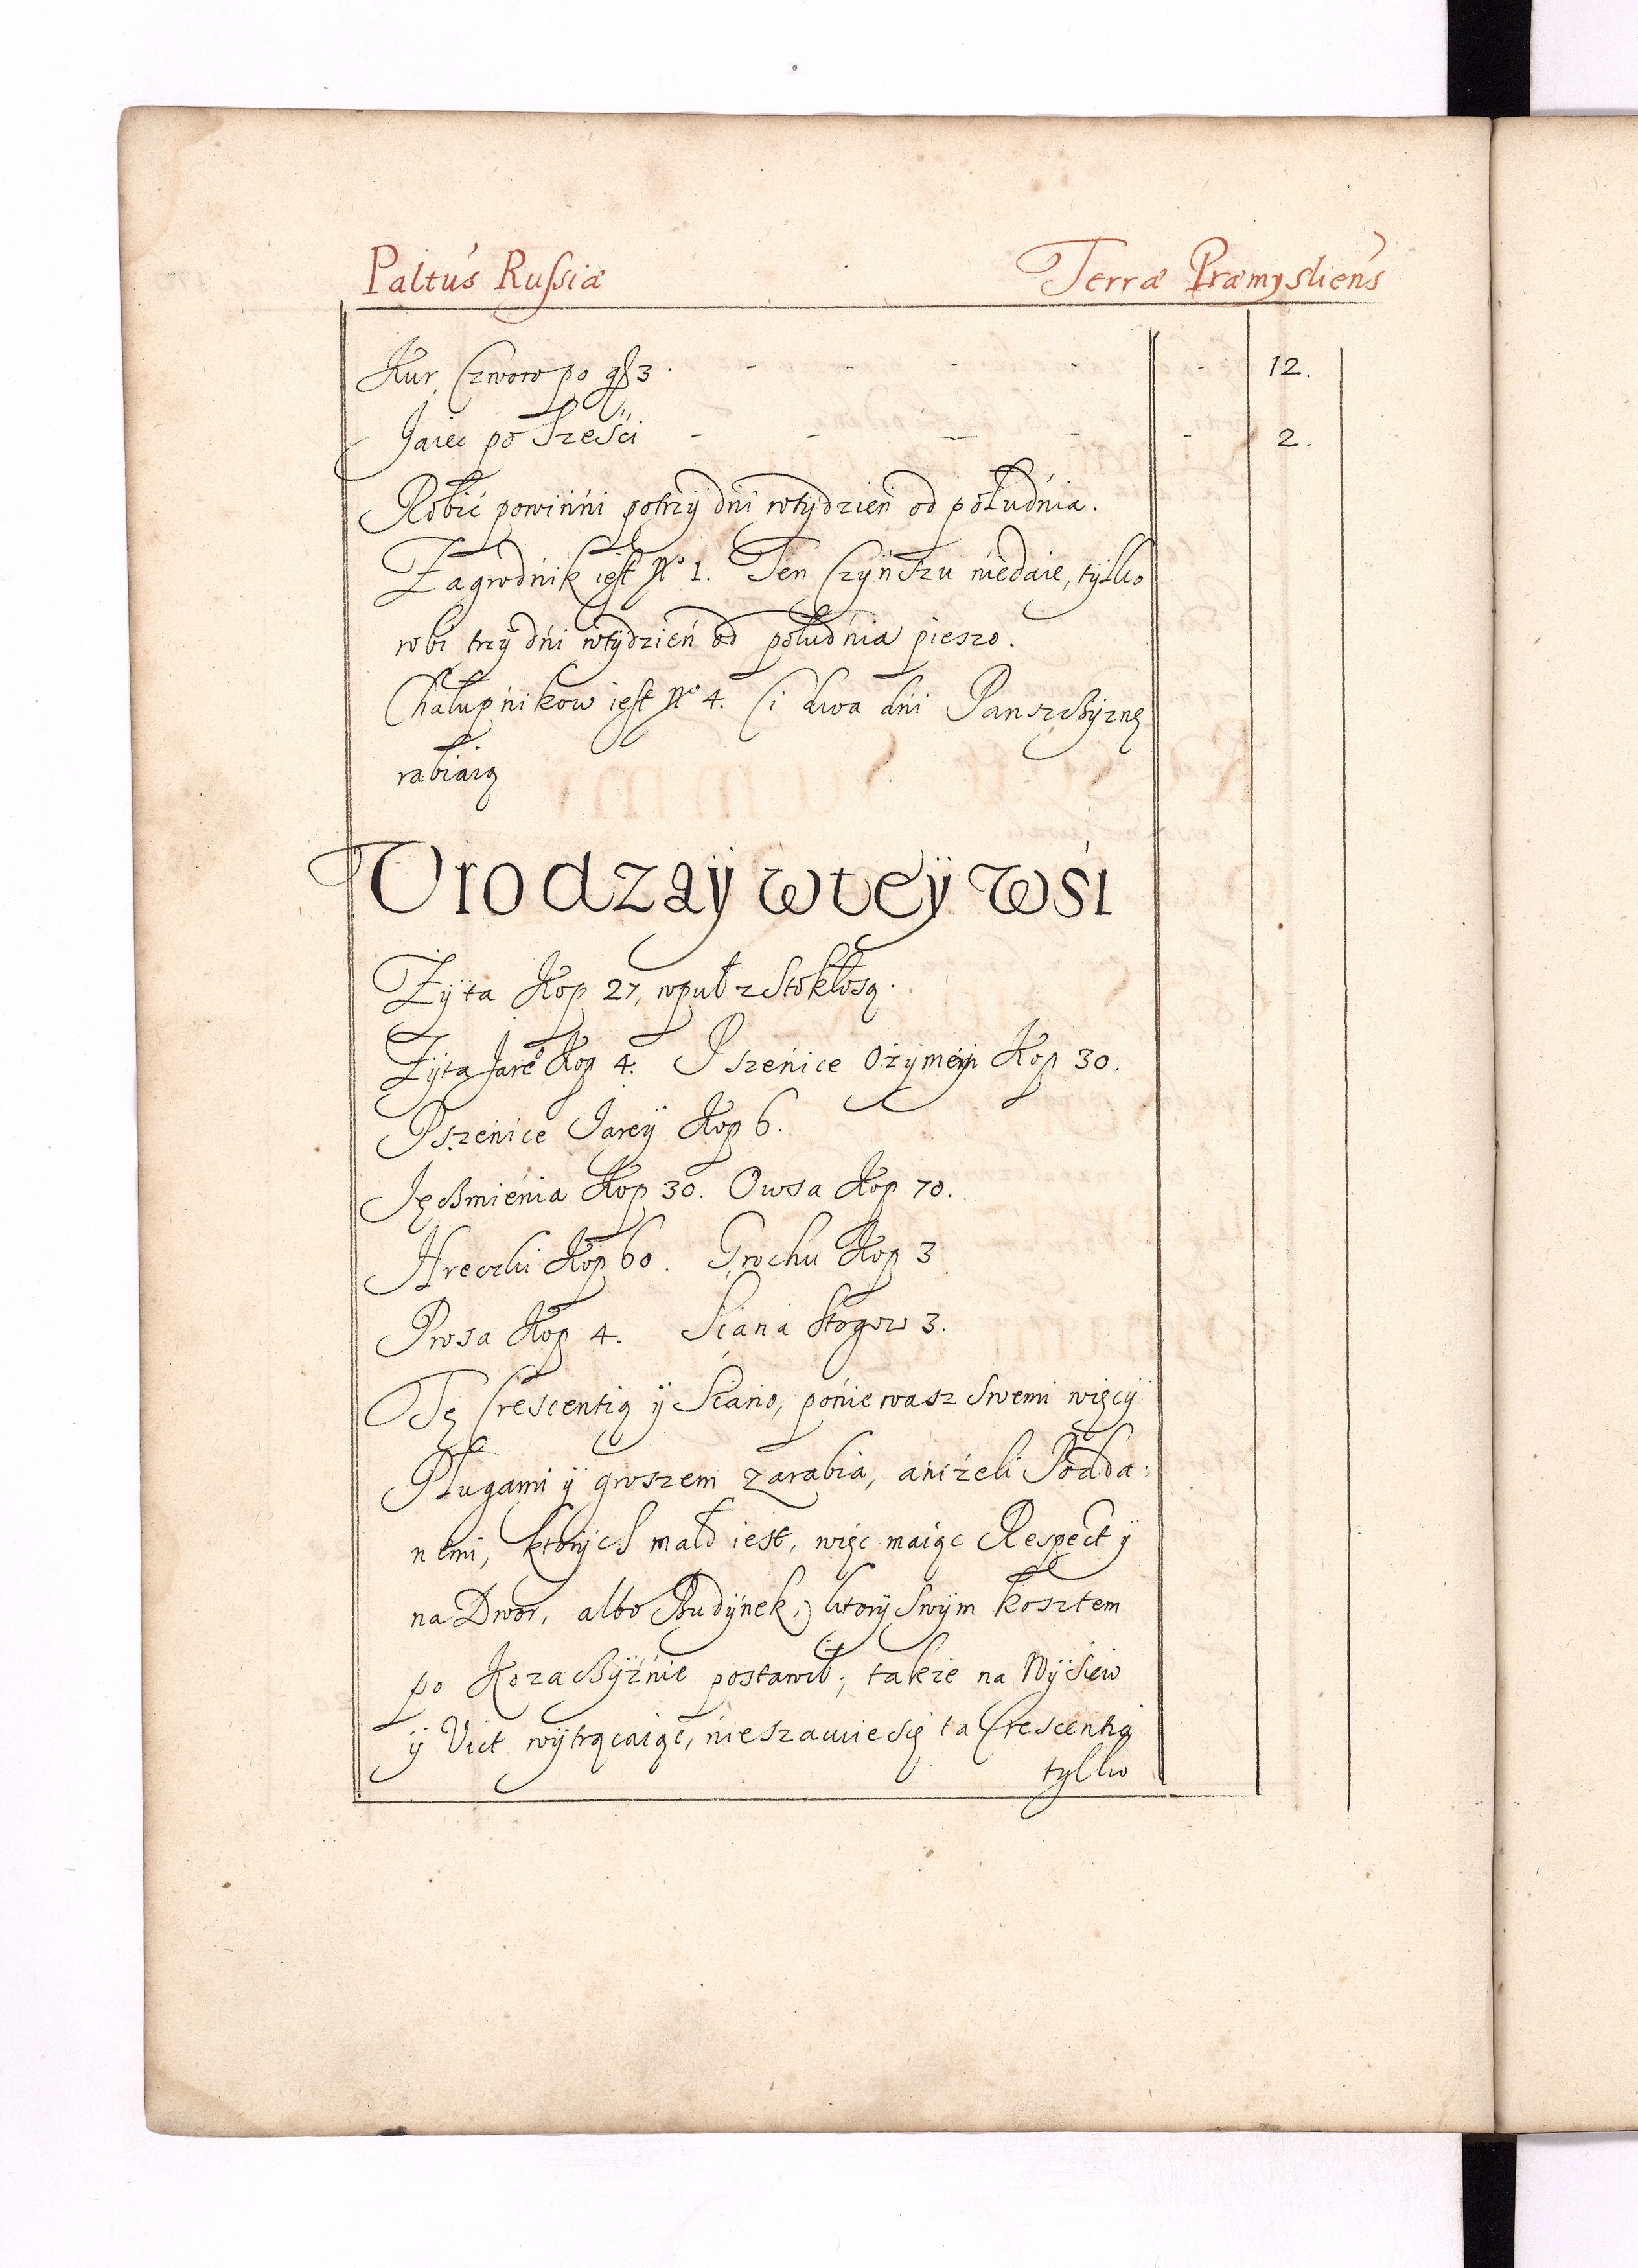 Paltus Russiæ Terræ Præmysliens
Kur Czworo po g𝔰 3 - - - - - 12.
Jaiec po Sześci - - - - - 2.
Robić powinni potrzÿ dni wtÿdzień od południa.
Zagrodnik iest No 1. Ten Czÿnszu niedaie, tÿlko
robi trzÿ dni wtÿdzień od południa pieszo.
Chałupnikow iest No 4. Ci dwa dni Panszczÿznę
rabiaią
Vrodzaÿ wteÿ wśi
Zÿta Kop 27, wpuł z Stokłosą.
Zÿta Jare Kop 4. Pszenice Ozÿmeÿ Kop 30.
Pszenice Jareÿ Kop 6.
Jęczmienia Kop 30. Owsa Kop 70.
Hreczki Kop 60. Grochu Kop 3
Prosa Kop 4. Siana Stogow 3.
Tę Crescentią ÿ Siano, poniewasz swemi więcÿ
Pługami ÿ groszem zarabia, aniżeli Podda:
nemi, ktorÿch mało iest, więc maiąc Respect ÿ
na Dwor, albo Budÿnek, ktorÿ swÿm kosztem
po Kozaczÿźnie postawił; takze na WÿSiew
ÿ Vict wÿtrącaiąc, nieszacuie się ta Crescentią
tylko